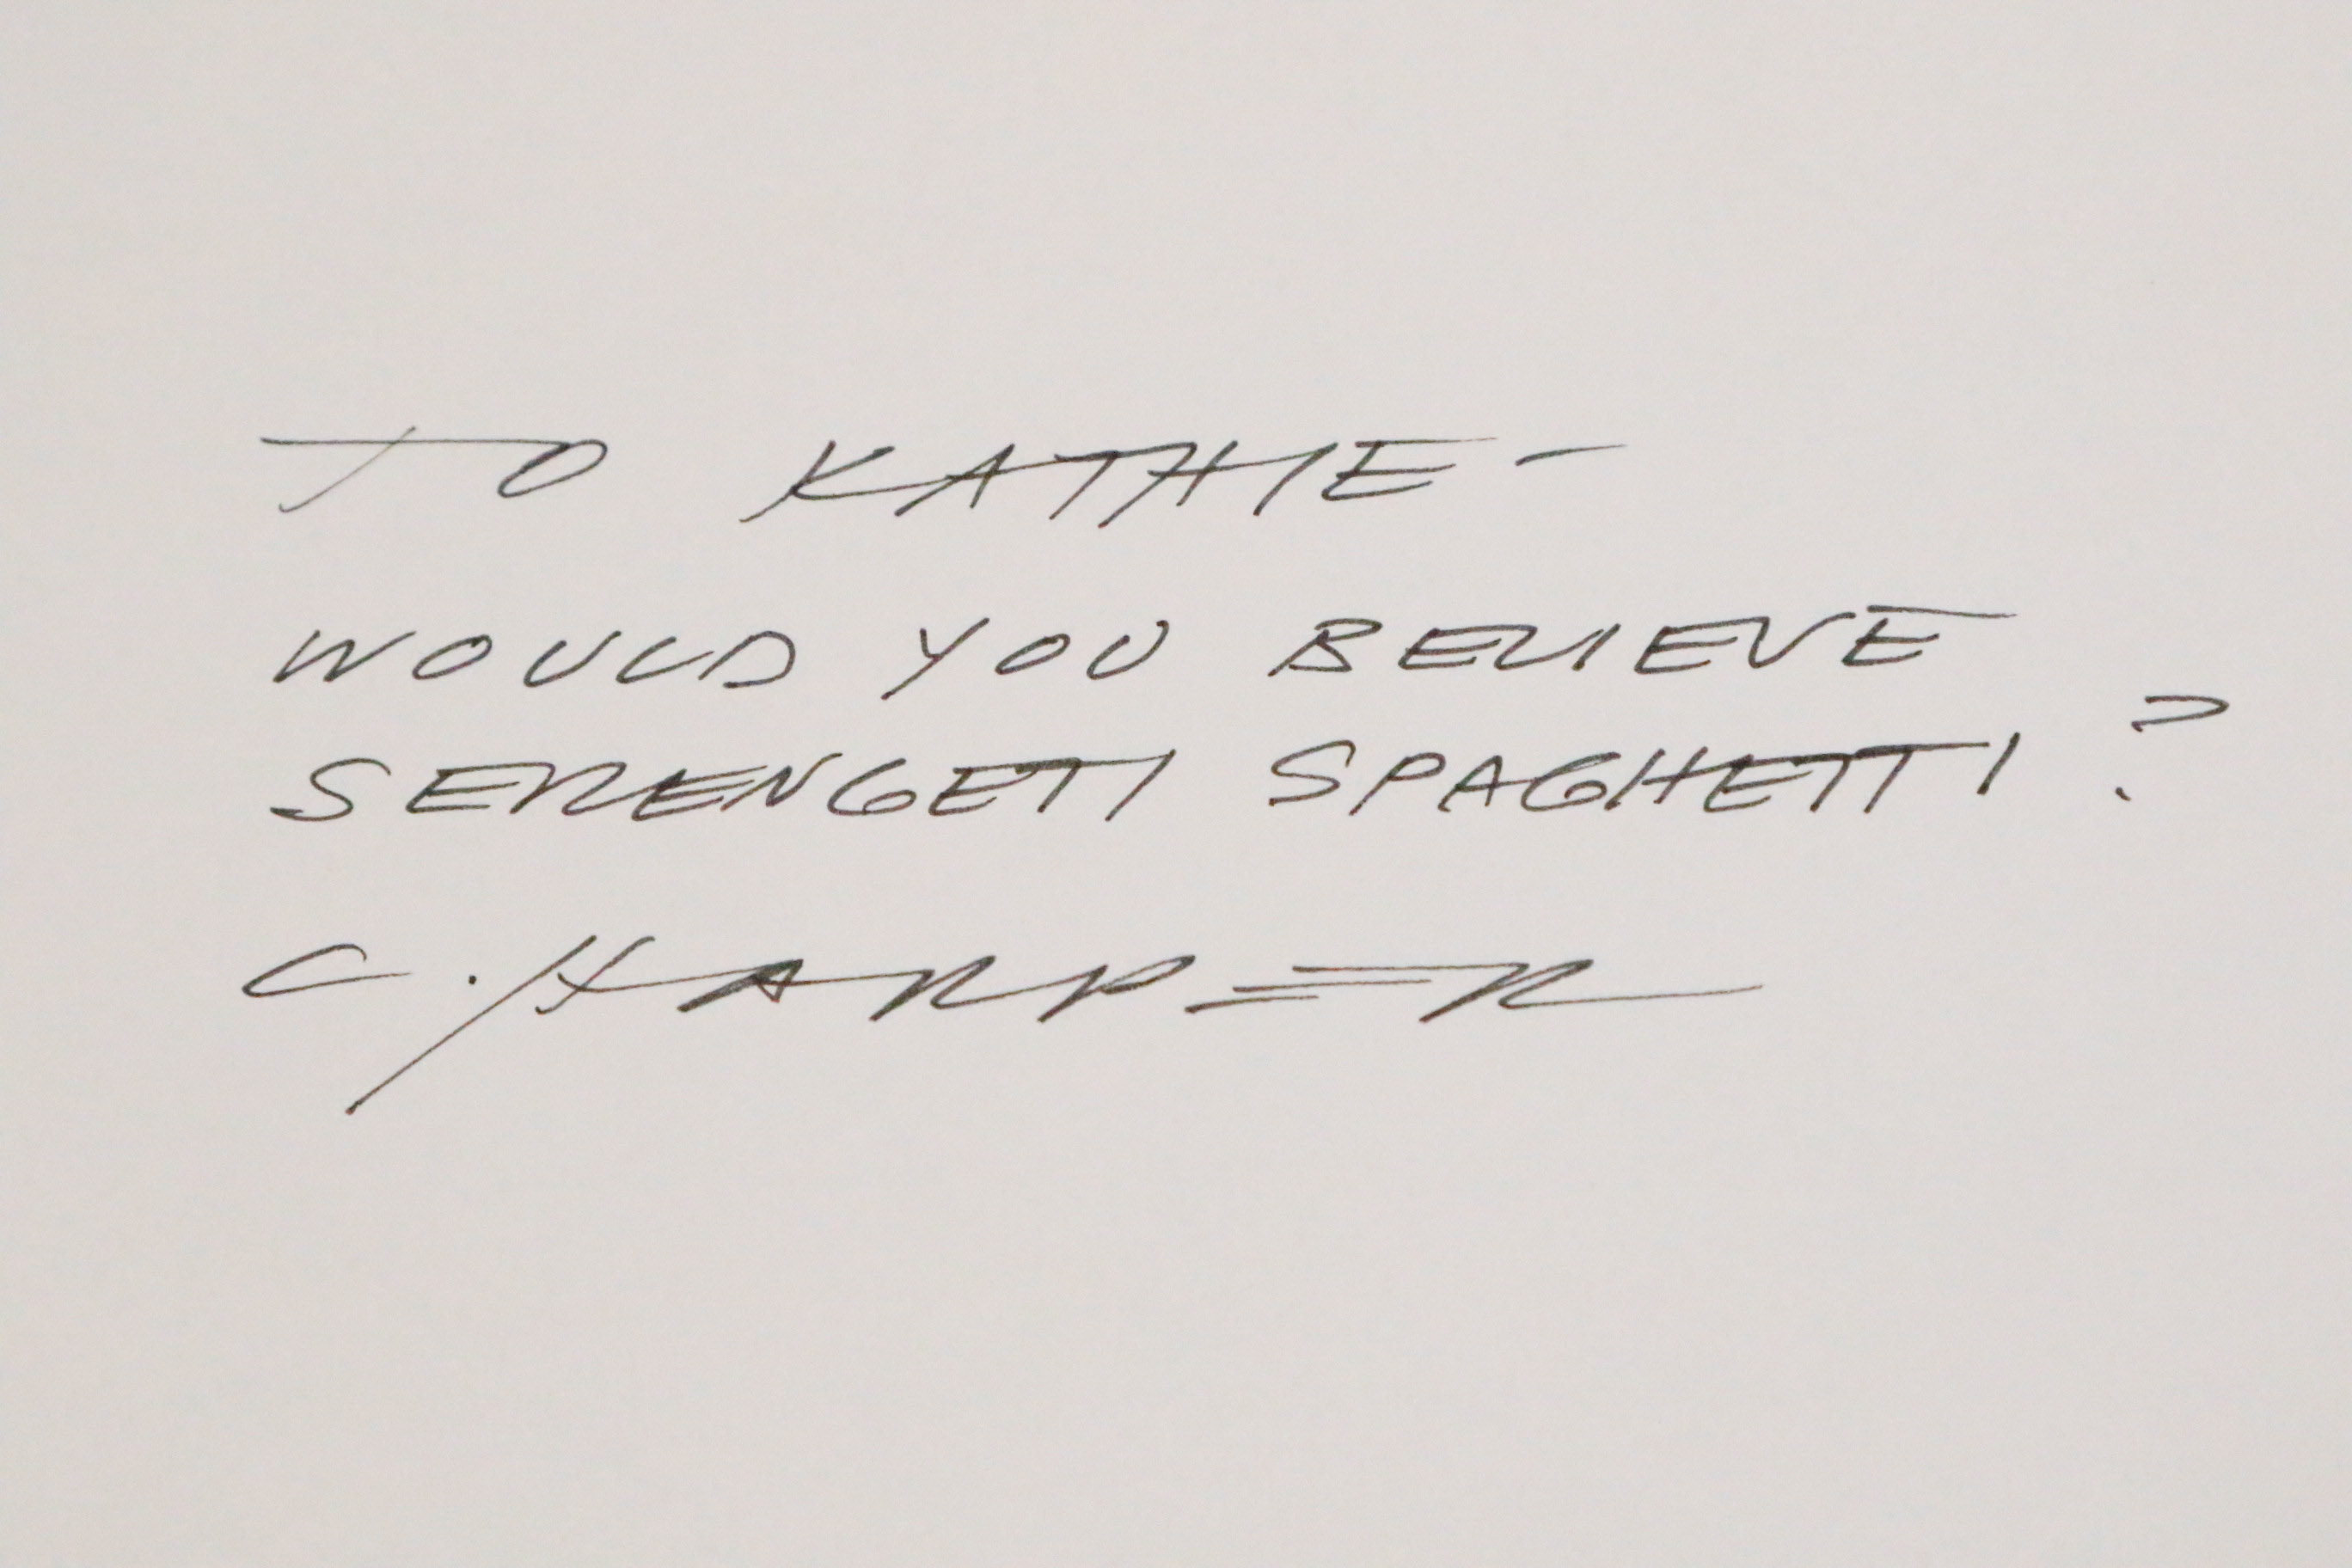 TO KATHIE -
WOULD YOU BELIEVE
SERENGETI SPAGHETTI ?
C. HARPER